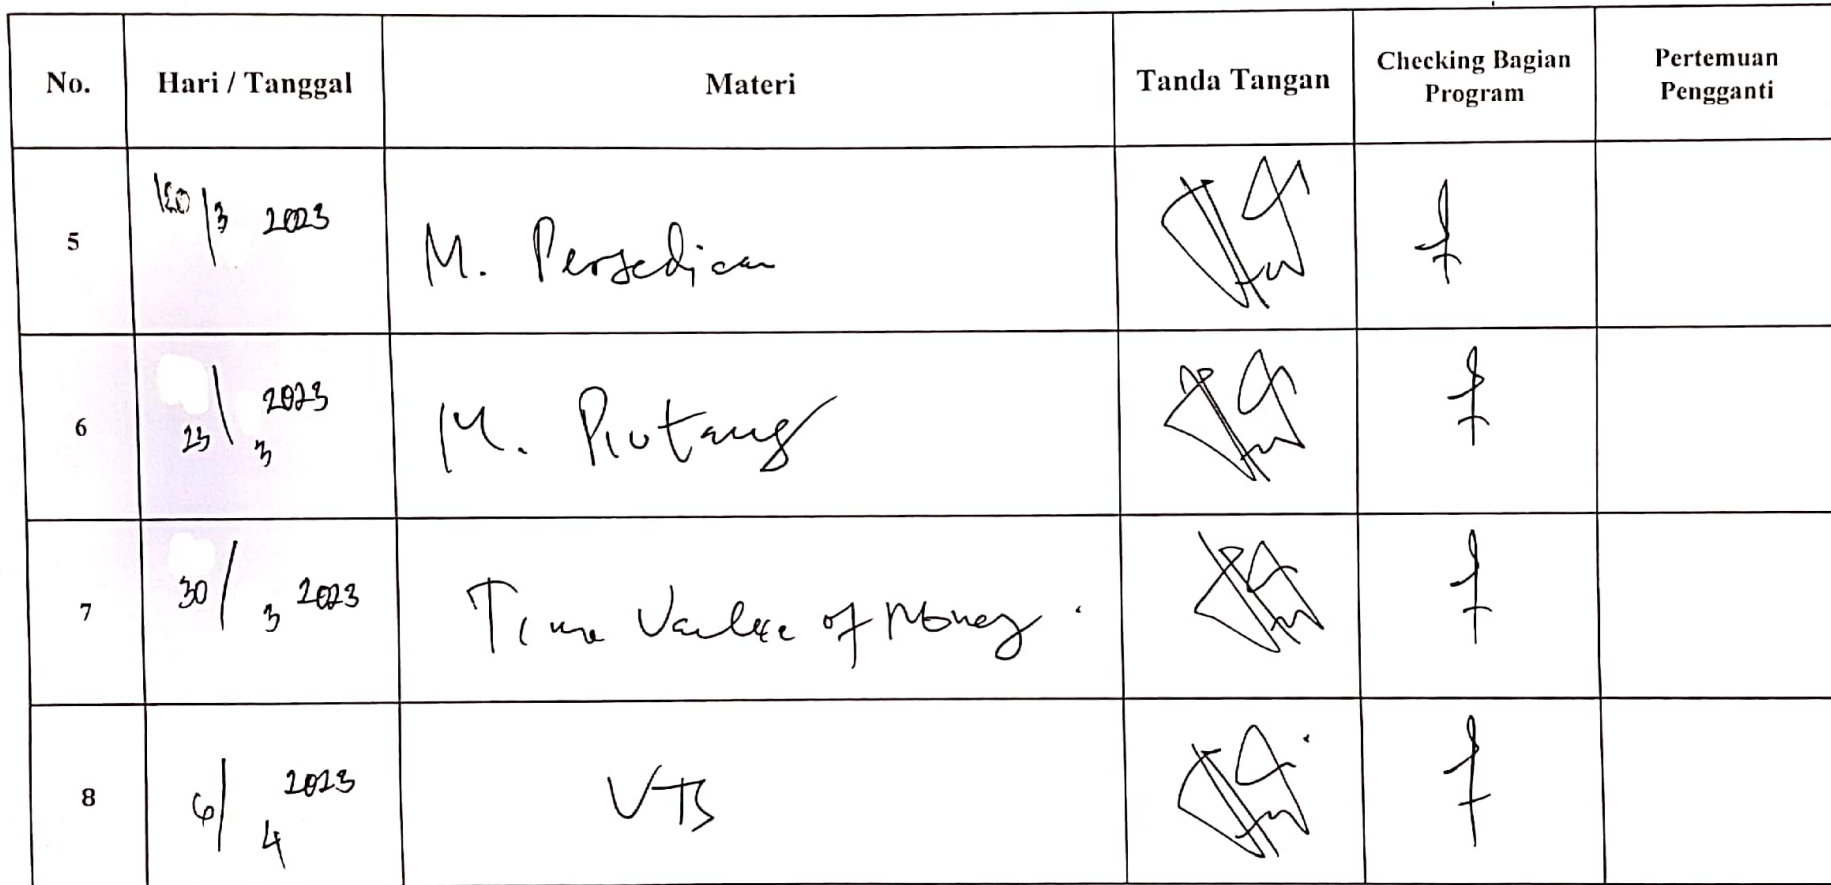 No. Hari / Tanggal Materi Tanda Tangan Checking Bagian Program Pertemuan Pengganti
5 /3 2023 M. Persediaan
6 23/3 2023 M. Piutang
7 30/3 2023 Time Value of Money.
8 6/4 2023 UTS